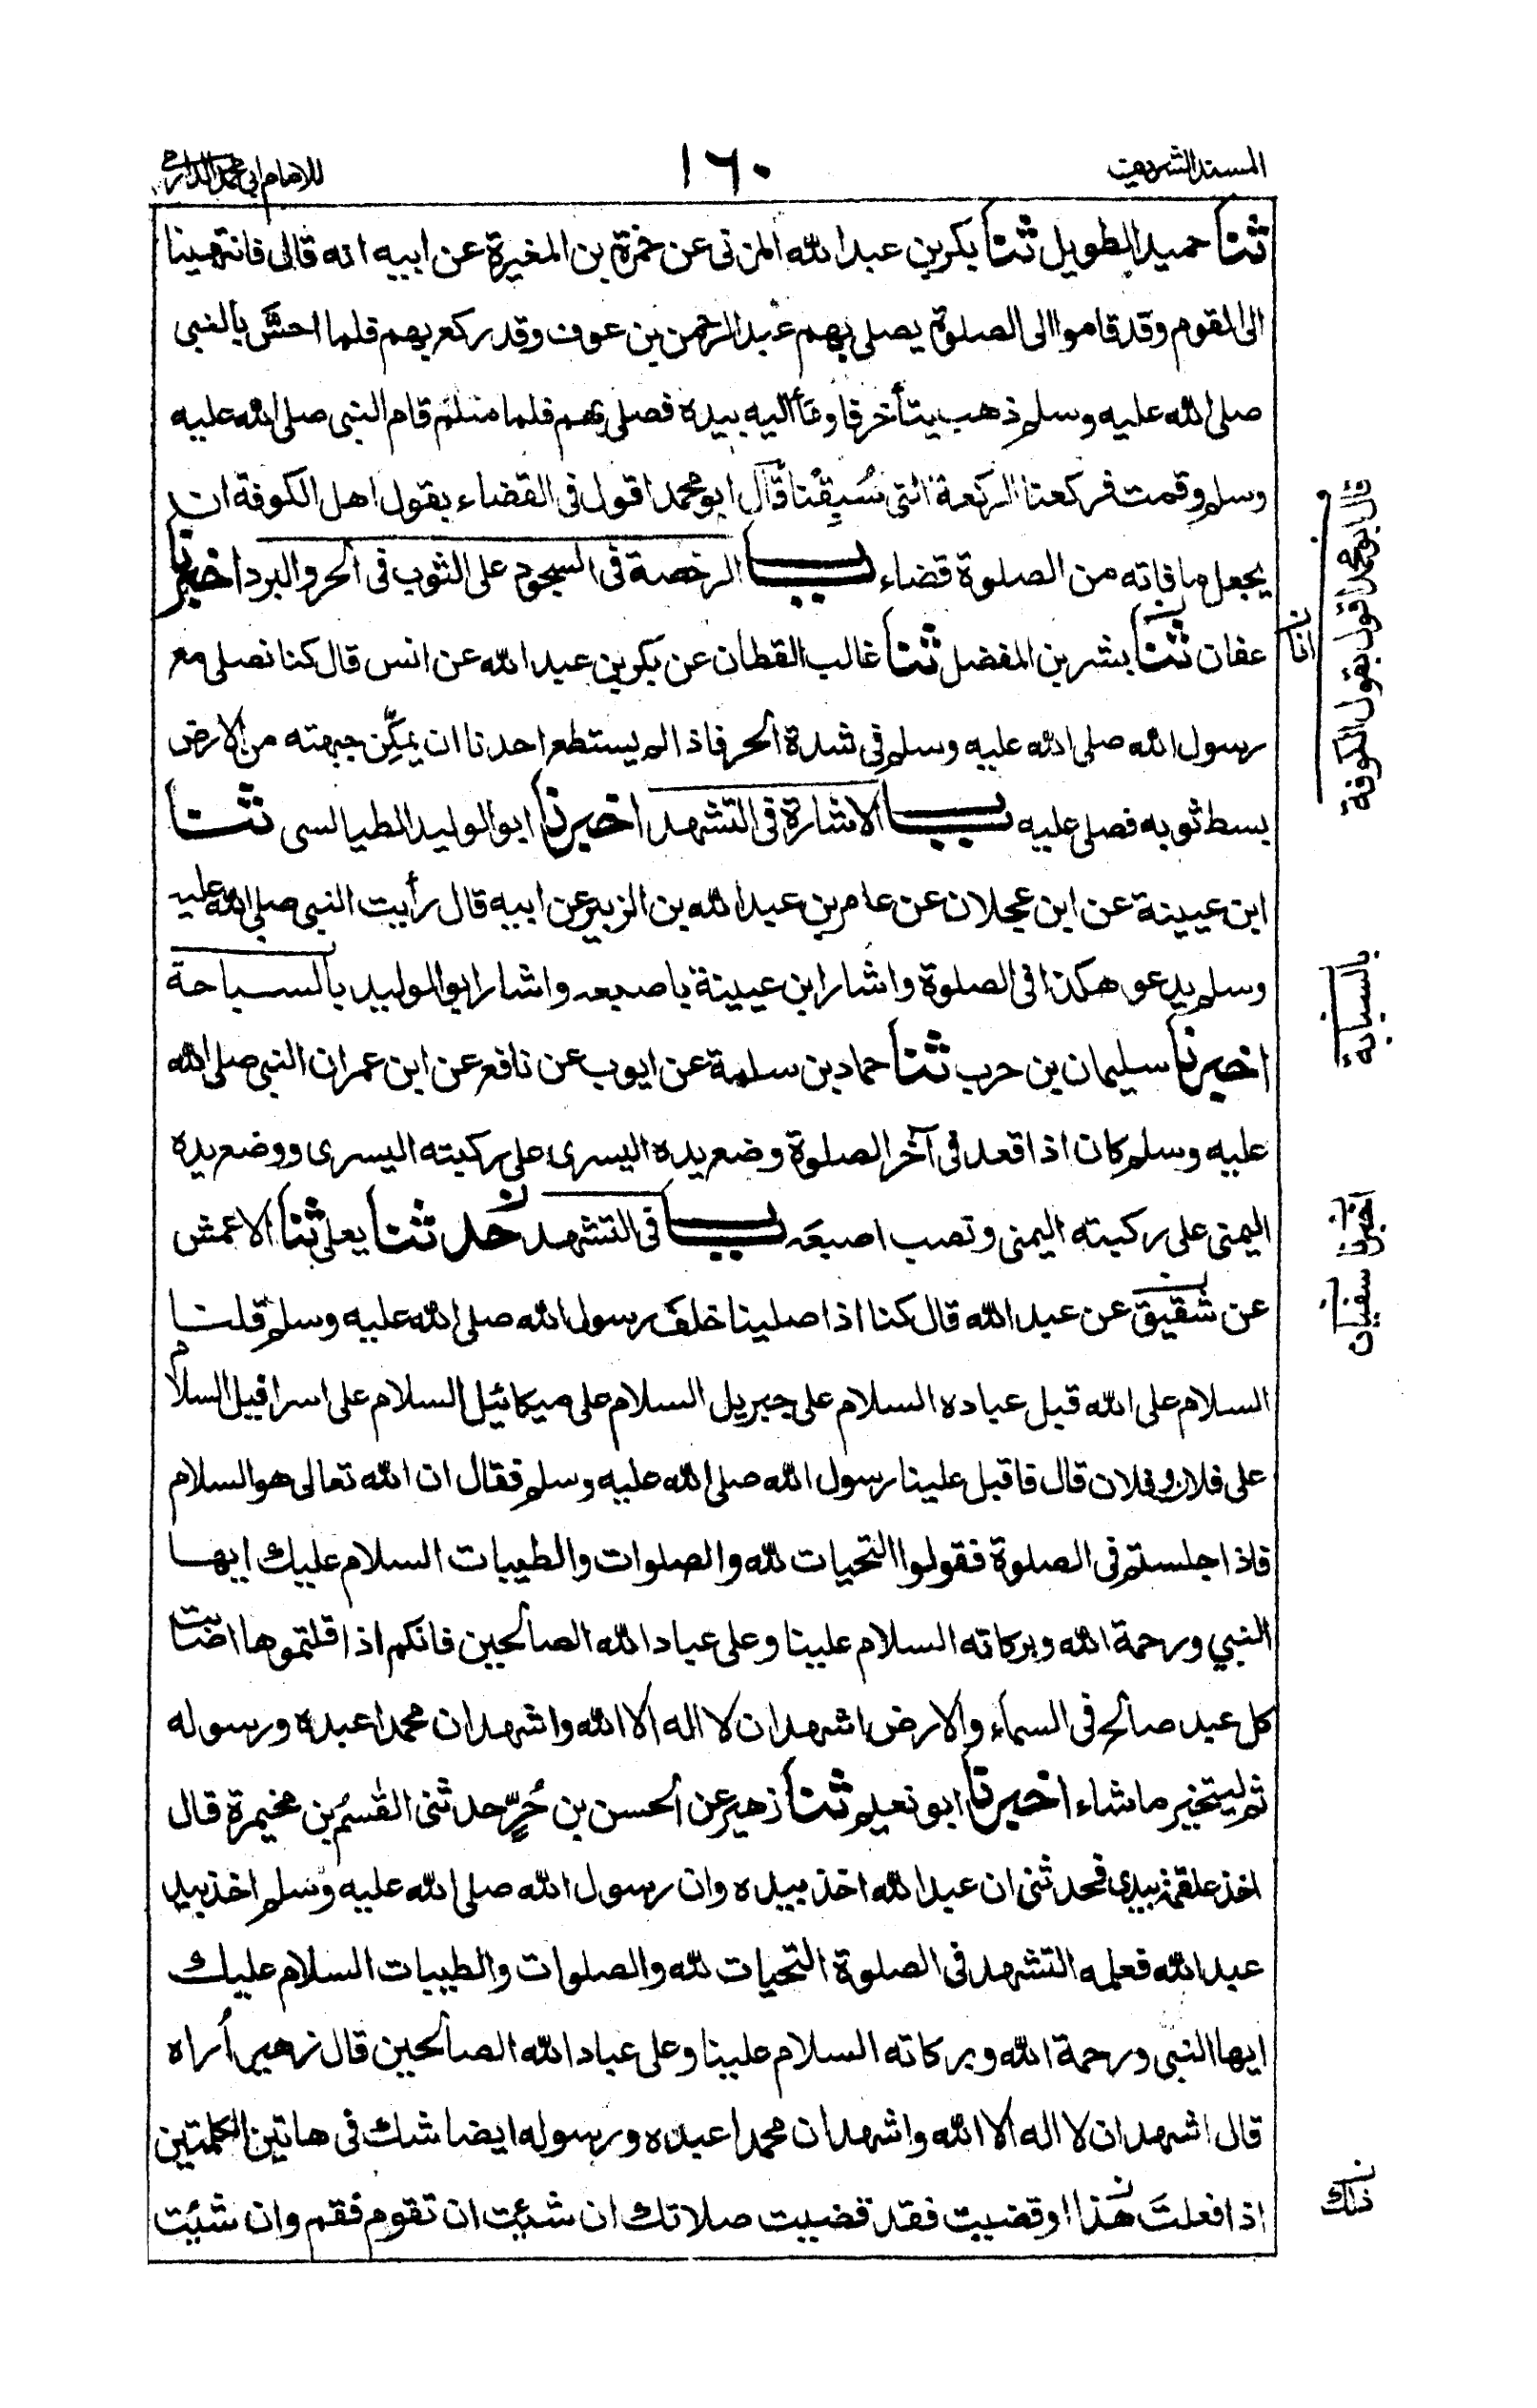 المسند الشريف
١٦٠
للامام ابي محمد الدارمي
ثنا حميد الطويل ثنا بكر بن عبد الله المزنى عن حمزة بن المغيرة عن ابيه انه قال فانتهينا
الى القوم وقد قاموا الى الصلوة يصلى بهم عبد الرحمن بن عوف وقد ركع بهم فلما احسَّ بالنبى
صلى الله عليه وسلم ذهب يتأخر فاومأ اليه بيده فصلى بهم فلما سلم قام النبى صلى الله عليه
وسلم وقمت فركعنا الركعة التى سُبِقْنا قال ابو محمد اقول فى القضاء بقول اهل الكوفة ان
يجعل ما فاته من الصلوة قضاء باب الرخصة فى السجود على الثوب فى الحر والبرد اخبرنا
عفان ثنا بشر بن المفضل ثنا غالب القطان عن بكر بن عبد الله عن انس قال كنا نصلى مع
رسول الله صلى الله عليه وسلم فى شدة الحر فاذا لم يستطع احدنا ان يمكِّن جبهته من الارض
بسط ثوبه فصلى عليه باب الاشارة فى التشهد اخبرنا ابو الوليد الطيالسى ثنا
ابن عيينة عن ابن عجلان عن عامر بن عبد الله بن الزبير عن ابيه قال رأيت النبى صلى الله عليه
وسلم يدعو هكذا فى الصلوة واشار ابن عيينة باصبعه واشار ابو الوليد بالسباحة
اخبرنا سليمان بن حرب ثنا حماد بن سلمة عن ايوب عن نافع عن ابن عمر ان النبى صلى الله
عليه وسلم كان اذا قعد فى آخر الصلوة وضع يده اليسرى على ركبته اليسرى ووضع يده
اليمنى على ركبته اليمنى ونصب اصبعَه باب فى التشهد حدثنا يعلى ثنا الاعمش
عن شقيق عن عبد الله قال كنا اذا صلينا خلف رسول الله صلى الله عليه وسلم قلنا
السلام على الله قبل عباده السلام على جبريل السلام على ميكائيل السلام على اسرافيل السلام
على فلان وفلان قال فاقبل علينا رسول الله صلى الله عليه وسلم فقال ان الله تعالى هو السلام
فاذا جلستم فى الصلوة فقولوا التحيات لله والصلوات والطيبات السلام عليك ايها
النبي ورحمة الله وبركاته السلام علينا وعلى عباد الله الصالحين فانكم اذا قلتموها اصابت
كل عبد صالح فى السماء والارض اشهد ان لا اله الا الله واشهد ان محمدا عبده ورسوله
ثم ليتخير ماشاء اخبرنا ابو نعيم ثنا زهير عن الحسن بن حُرٍّ حدثنى القٰسمُ بن مخيمرة قال
اخذ علقمة بيدى فحدثنى ان عبد الله اخذ بيده وان رسول الله صلى الله عليه وسلم اخذ بيد
عبد الله فعلمه التشهد فى الصلوة التحيات لله والصلوات والطيبات السلام عليك
ايها النبى ورحمة الله وبركاته السلام علينا وعلى عباد الله الصالحين قال زهير أراه
قال اشهد ان لا اله الا الله واشهد ان محمدا عبده ورسوله ايضا شك فى هاتين الكلمتين
اذا فعلتَ هذا او قضيت فقد قضيت صلاتك ان شئت ان تقوم فقم وان شئت
قال ابو محمد اقول بقول الكوفة
انا
بالسبابة
اخبرنا سفيان
ذلك